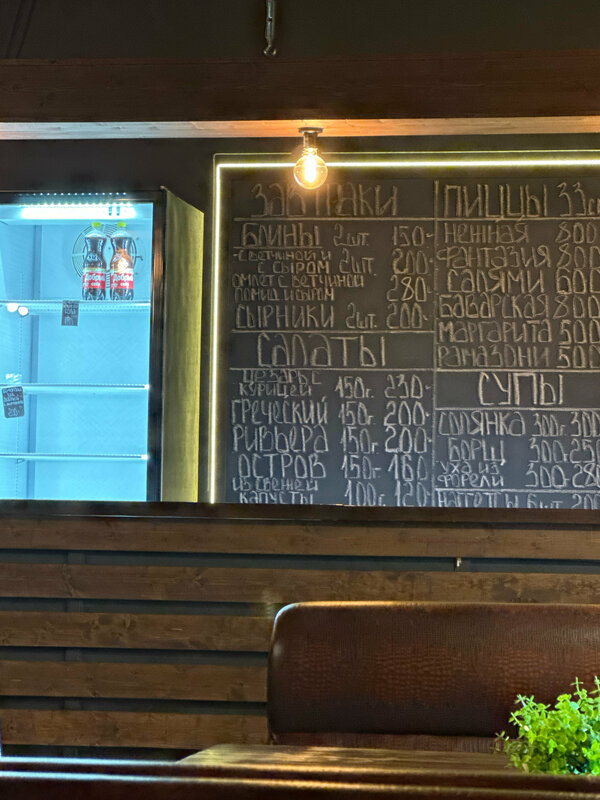 ЗАВТРАКИ
БЛИНЫ 2шт. 150-
С ВЕТЧИНОЙ И
С СЫРОМ 2шт. 200-
ОМЛЕТ С ВЕТЧИНОЙ
ПОМИД. И СЫРОМ 280-
СЫРНИКИ 2шт. 200-
САЛАТЫ
ЦЕЗАРЬ С
КУРИЦЕЙ 150г. 230-
ГРЕЧЕСКИЙ 150г. 200-
РИВЬЕРА 150г. 200-
ОСТРОВ 150г. 160-
ИЗ СВЕЖЕЙ
КАПУСТЫ 100г. 120
ПИЦЦЫ 33
НЕЖНАЯ 800
ФАНТАЗИЯ 800
САЛЯМИ 600
БАВАРСКАЯ 800
МАРГАРИТА 500
РАМАЗОНИ 500
СУПЫ
СОЛЯНКА 300г. 300
БОРЩ 300г. 250
УХА ИЗ
ФОРЕЛИ 300г. 280
НАГГЕТЫ 6шт. 200
Добрый
Добрый